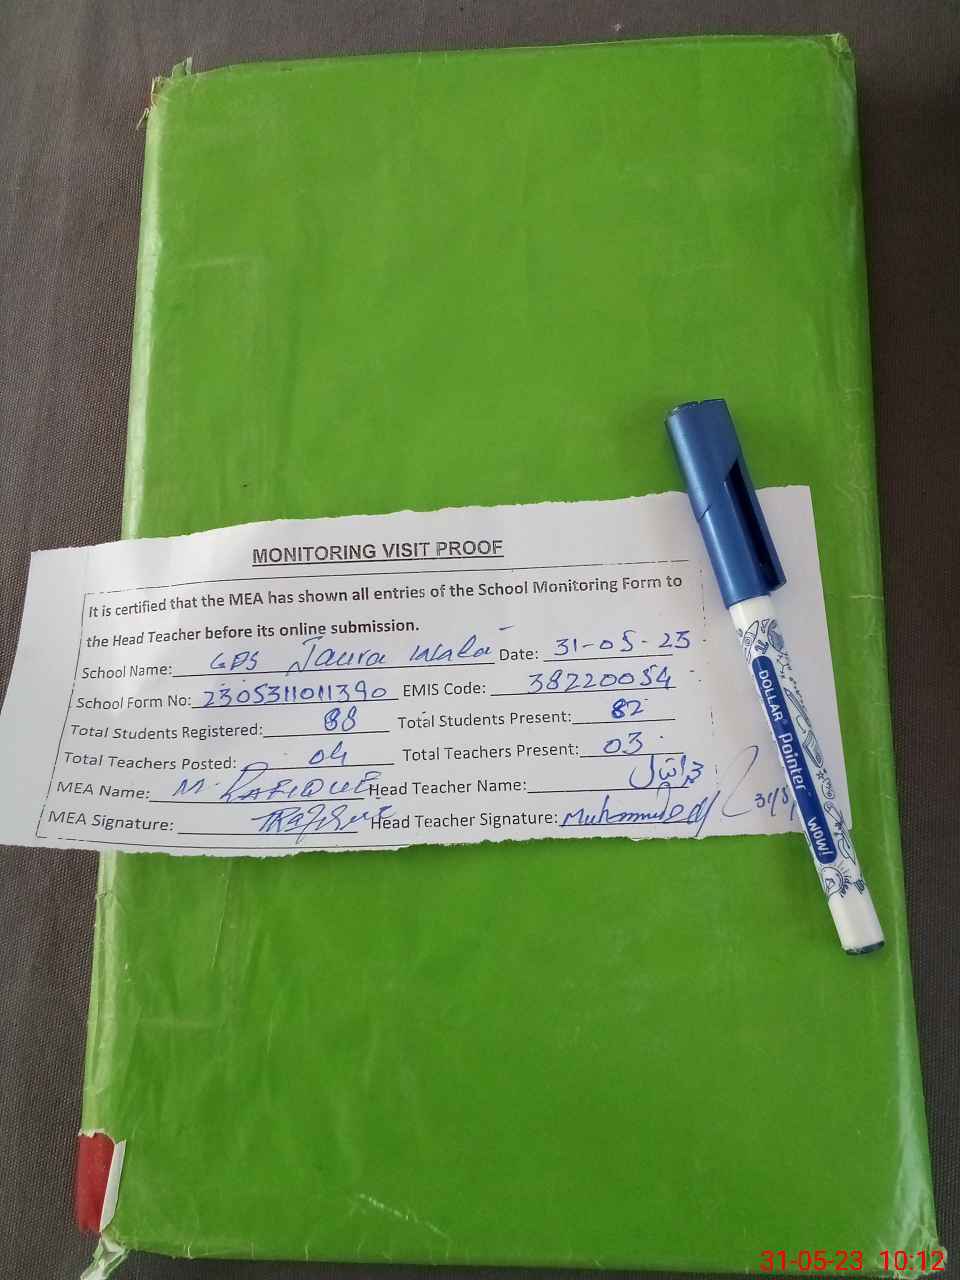 MONITORING VISIT PROOF
It is certified that the MEA has shown all entries of the School Monitoring Form to
the Head Teacher before its online submission.
School Name: GPS Jaura Wala Date: 31-05-23
School Form No: 2305311011390 EMIS Code: 38220054
Total Students Registered: 88 Total Students Present: 82
Total Teachers Posted: 04 Total Teachers Present: 03
MEA Name: M. RAFIQUE Head Teacher Name:
MEA Signature: Head Teacher Signature: 31/5
DOLLAR pointer WOW!
31-05-23 10:12